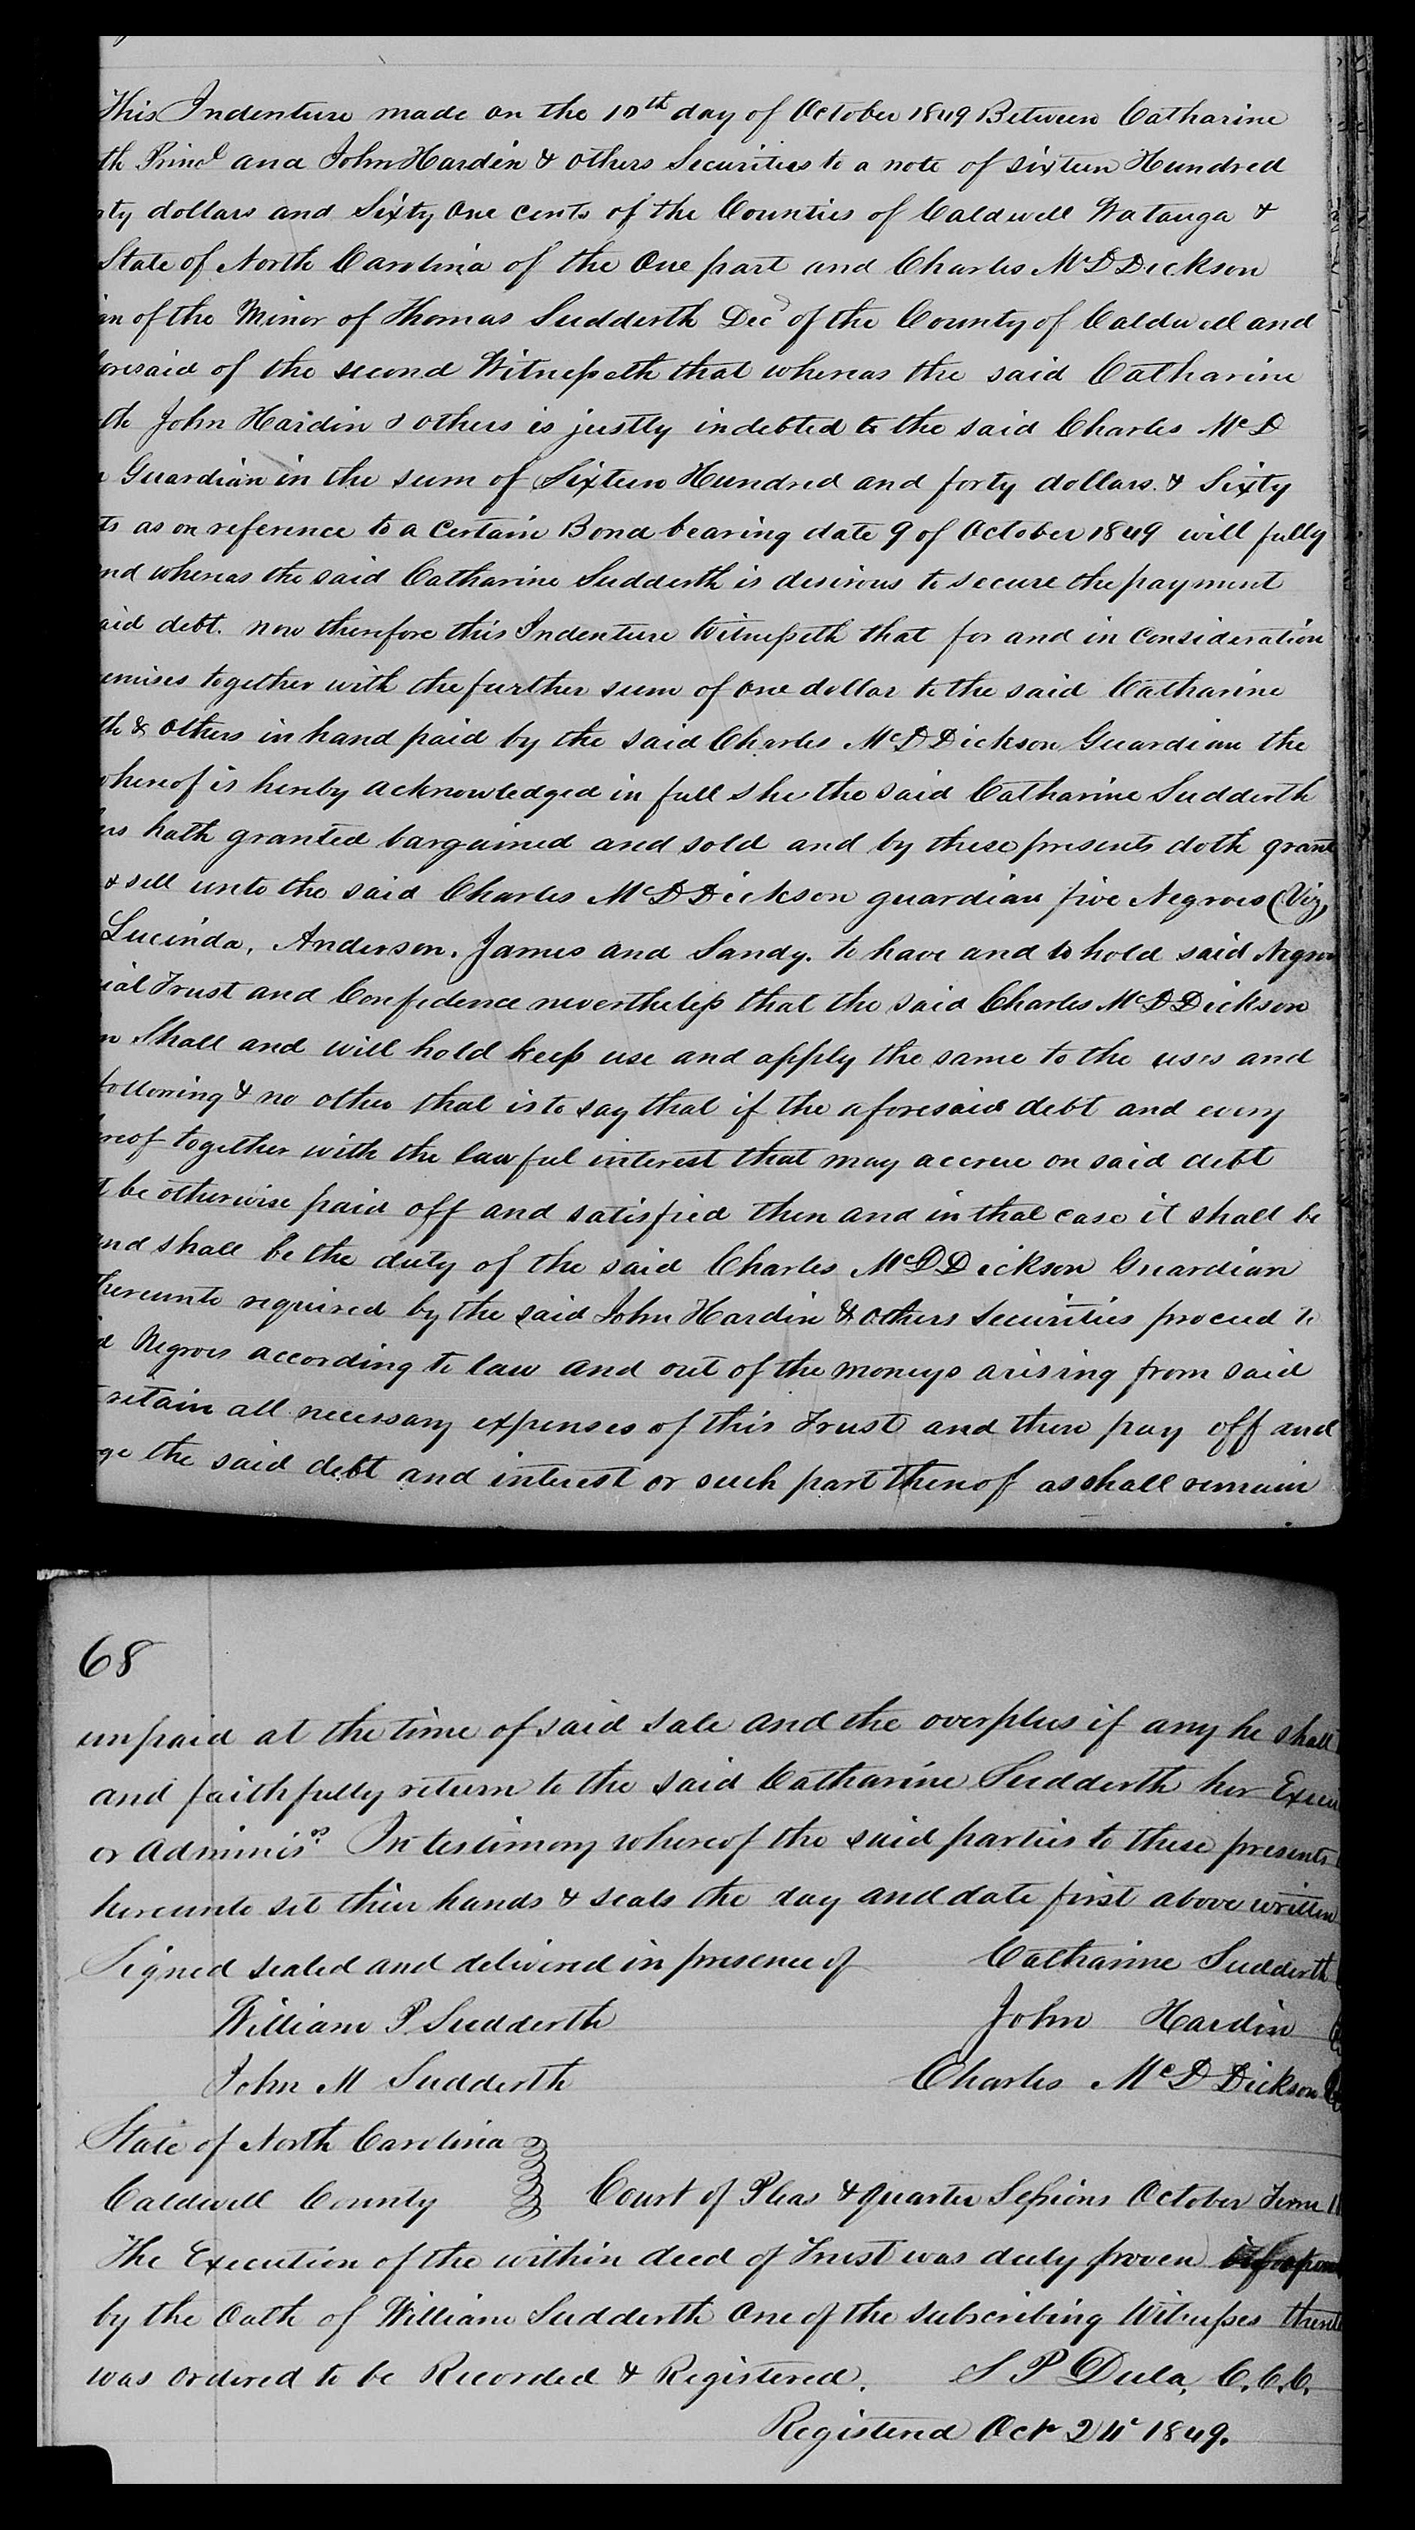 This Indenture made on the 10th day of October 1849 Between Catharine
th Princl and John Hardin & others Securities to a note of sixteen Hundred
ty dollars and Sixty One cents of the Counties of Caldwell Watauga &
State of North Carolina of the One part and Charles McD Dickson
an of the Minor of Thomas Sudderth Decd of the County of Caldwell and
oresaid of the second Witnesseth that whereas the said Catharine
th John Hardin & others is justly indebted to the said Charles McD
Guardian in the sum of Sixteen Hundred and forty dollars & Sixty
ts as on reference to a Certain Bond bearing date 9 of October 1849 will fully
nd whereas the said Catharine Sudderth is desirous to secure the payment
aid debt. now therefore this Indenture Witnesseth that for and in Consideration
emises together with the further sum of one dollar to the said Catharine
th & others in hand paid by the said Charles McD Dickson Guardian the
whereof is hereby acknowledged in full she the said Catharine Sudderth
ers hath granted bargained and sold and by these presents doth grant
& sell unto the said Charles McD Dickson guardian five Negroes (Viz,
Lucinda, Anderson, James and Sandy. to have and to hold said Negroe
ial Trust and Confidence nevertheless that the said Charles McD Dickson
n Shall and will hold keep use and apply the same to the uses and
following & no other that is to say that if the aforesaid debt and every
ereof together with the lawful interest that may accrue on said debt
t be otherwise paid off and satisfied then and in that case it shall be
and shall be the duty of the said Charles McD Dickson Guardian
thereunto required by the said John Hardin & others Securities proceed to
d Negroes according to law and out of the moneys arising from said
retain all necessary expenses of this Trust and then pay off and
ge the said debt and interest or such part thereof as shall remain
68
unpaid at the time of said sale and the overplus if any he shall
and faithfully return to the said Catharine Sudderth her Execu
or Adminisrs In testimony whereof the said parties to these presents
hereunto set their hands & seals the day and date first above written
Signed sealed and delivered in presence of Catharine Sudderth
William P. Sudderth John Hardin
John M Sudderth Charles McD Dickson
State of North Carolina
Caldwell County Court of Pleas & quarter Sessions October Term 1
The Execution of the within deed of Trust was duly proven
by the Oath of William Sudderth One of the subscribing Witnesses
was ordered to be Recorded & Registered. S P Dula, C.C.C.
Registered Oct 24 1849.